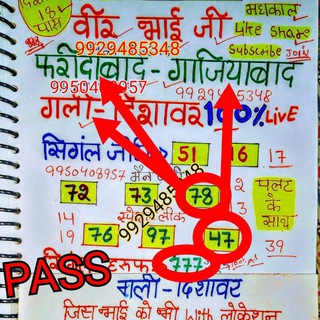 महाकाल
वीर भाई जी
Like Share
Subscribe JOIN
9929485348
फरीदाबाद - गाजियाबाद
9950408957
9929485348
गली - दिशावर 100% Live
सिगंल 51 16 17
9950408957
72 73 78
पलट
के
साथ
14
19 76 97 47 39
9929485348
PASS
777
गली - दिशावर
जिस भाई को भी with लोकेशन